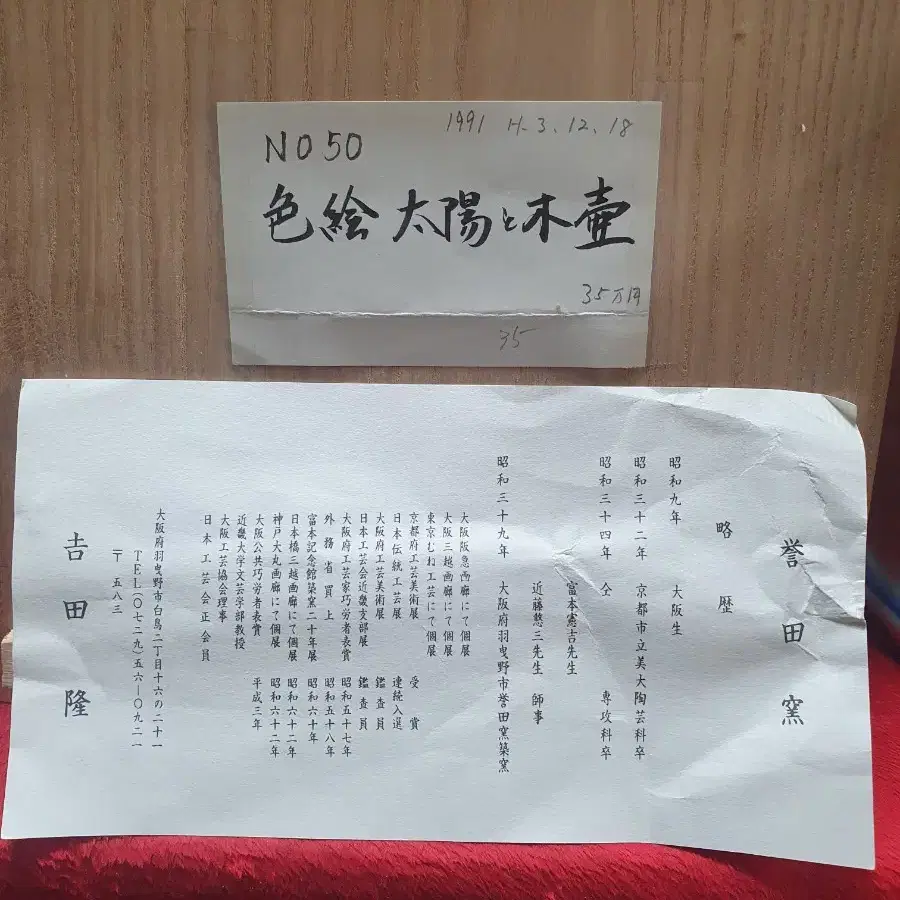 1991 H.3.12.18
NO 50
色絵 太陽と木壷
35万円
35
誉田窯
略歴
昭和九年 大阪生
昭和三十二年 京都市立美大陶芸科卒
昭和三十四年 仝 専攻科卒
富本憲吉先生
近藤悠三先生 師事
昭和三十九年 大阪府羽曳野市誉田窯築窯
大阪阪急画廊にて個展
大阪三越画廊にて個展
東京むね工芸にて個展
京都府工芸美術展 受賞
日本伝統工芸展 連続入選
大阪府工芸美術展 鑑査員
日本工芸会近畿支部展 鑑査員
大阪府工芸家巧労者表賞 昭和五十七年
外務省買上 昭和五十八年
富本記念館築窯二十年展 昭和六十年
日本橋三越画廊にて個展 昭和六十二年
神戸大丸画廊にて個展 昭和六十二年
大阪公共巧労者表賞 平成三年
近畿大学文芸学部教授
大阪工芸協会理事
日本工芸会正会員
大阪府羽曳野市白鳥二丁目十六の二十一
TEL(〇七二九)五六―〇九二一
〒 五八三
吉田隆